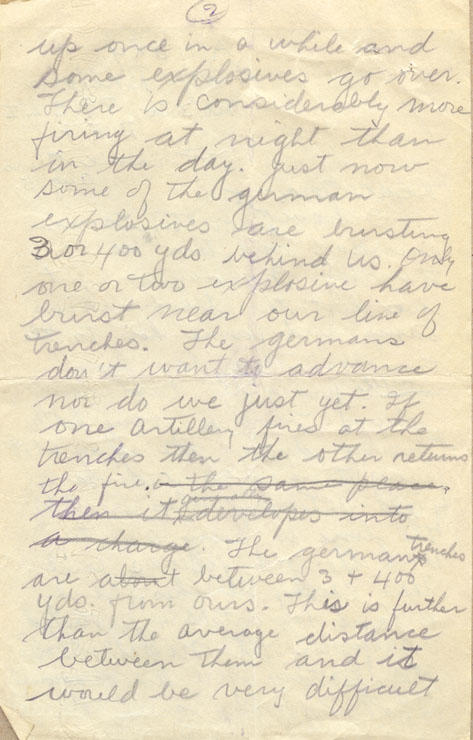 (2)
up once in a while and
some explosives go over.
There is considerably more
firing at night than
in the day. just now
some of the german
explosives are bursting
3 or 400 yds. behind us. Only
one or two explosive have
burst near our line of
trenches. The germans
don't want to advance
nor do we just yet. If
one artillery fires at the
trenches then the other returns
the fire. in the same place.
then it generally developes into
a charge. The german trenches
are about between 3 + 400
yds. from ours. This is further
than the average distance
between them and it
would be very difficult